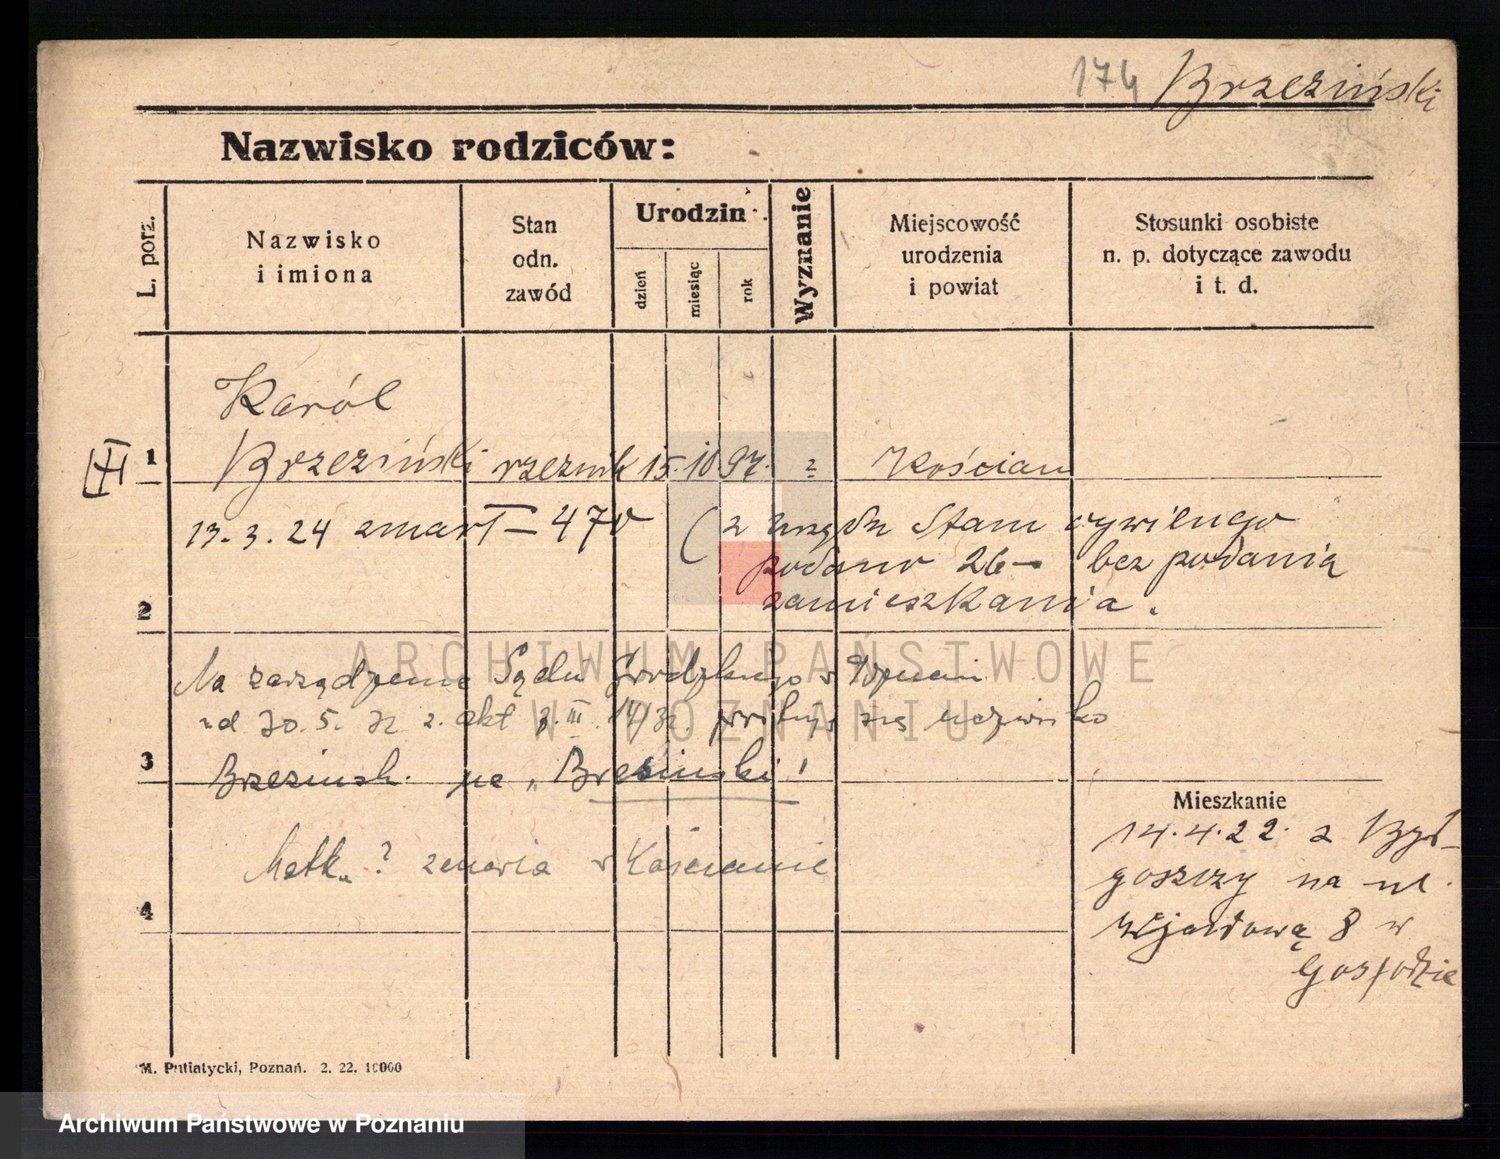 174 Brzeziński
Nazwisko rodziców:
L. porz.
Nazwisko
i imiona
Stan
odn.
zawód
Urodzin
dzień
miesiąc
rok
Wyznanie
Miejscowość
urodzenia
i powiat
Stosunki osobiste
n. p. dotyczące zawodu
i t. d.
Karól
1 Brzeziński rzeźnik 15. 10 97. ? Kościan
13. 3. 24 zmarł – 470 (z Stanu cywilnego
podano 26 – bez podania
2 zamieszkania.
Na zarządzenie Sądu Grodzkiego w Poznaniu
od 30. 5. 32 z. akt III 14/32 się nazwisko
3 Brzezinsk. na „Bresinski"
Mieszkanie
14. 4. 22. z Byd-
goszczy na ul.
Wjazdową 8 w
Gospodzie
Matk. ? zmarła w Kościanie
4
M. Putiatycki, Poznań. 2. 22. 10000
ARCHIWUM PAŃSTWOWE
W POZNANIU
Archiwum Państwowe w Poznaniu